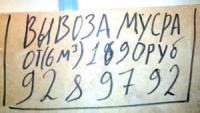 ВЫВОЗА МУСРА
ОТ(6м³)1890РУб
9289792